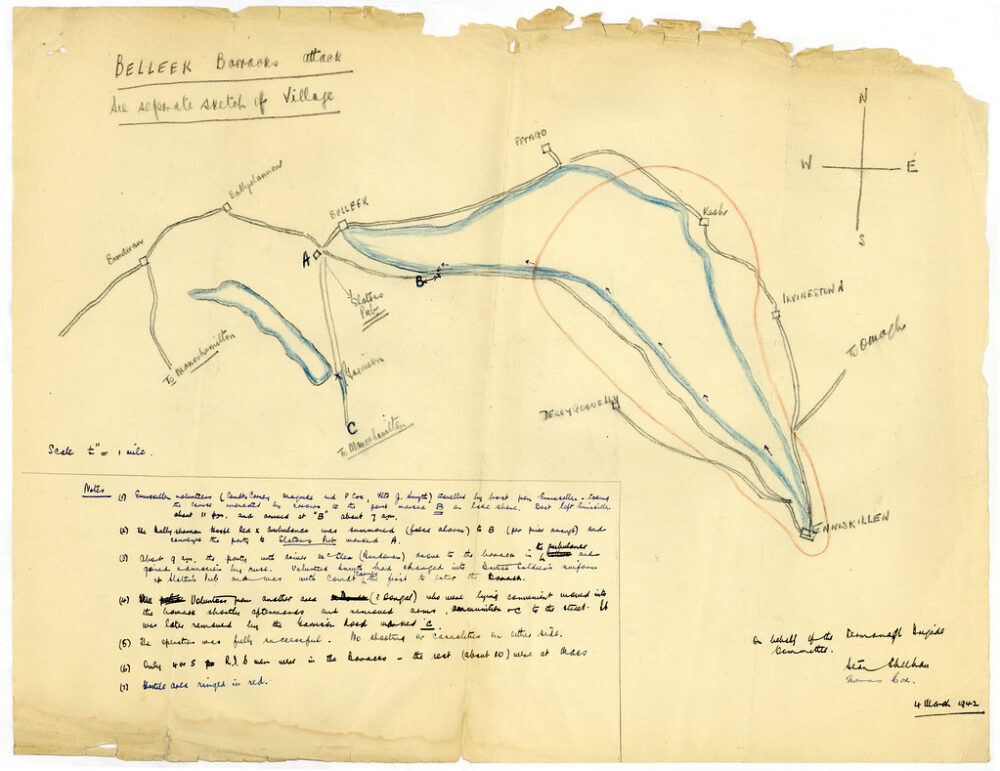 BELLEEK Barracks attack
See separate sketch of Village
N
W E
S
PETTAGO
Ballyshannon
BELLEEK
Kesh
Bundoran
A
B
Slatons
Pub
IRVINESTOWN
To Omagh
To Manorhamilton
Garrison
DERRYGONNELLY
C
To Manorhamilton
Scale ½" = 1 mile.
ENNISKILLEN
Notes
(1) Enniskillen volunteers ( Comdt Carney, Maguire and P Cox, Vols J. Smyth) travelled by boat from Enniskillen - taking
the course indicated by arrows to the point marked B on lake shore. Boat left Enniskillen
about 11 pm. and arrived at "B" about 7 am.
(2) The Ballyshannon Hospl Red X Ambulance was summoned (false alarm) to B (per prior arrangt) and
conveyed the party to Slatons Pub marked A.
(3) About 9 am the party with driver (Bundoran) drove to the barrack in the ambulance and
gained admission by ruse. Volunteer Smyth had changed into British Soldier's uniform
at Slaton's Pub and was with Comdt Carney the first to enter the Barrack.
(4) Volunteers from another area (3 Donegal) who were lying convenient moved into
the barrack shortly afterwards and removed arms, ammunition &C to the street. It
was later removed by the Garrison Road marked C.
(5) The operation was fully successful. No shooting or casualties on either side.
(6) Only 4 or 5 R.I.C men were in the Barracks - the rest (about 10) were at Mass
(7) Hostile area ringed in red.
On behalf of the Fermanagh Brigade
Committee.
Seán Sheehan
Thomas Cox.
4 March 1942